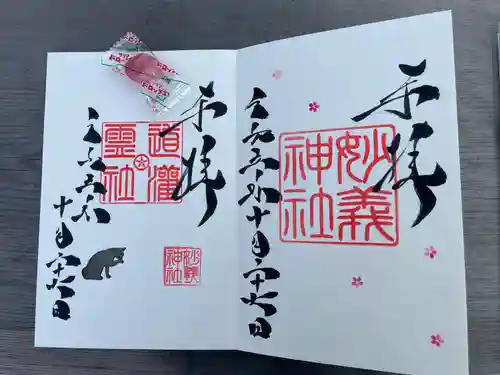 奉拝
妙義
神社
令和五年十月二十
日
奉拝
道灌
霊社
妙義
神社
令和五年
十月二十
日
ドロップス